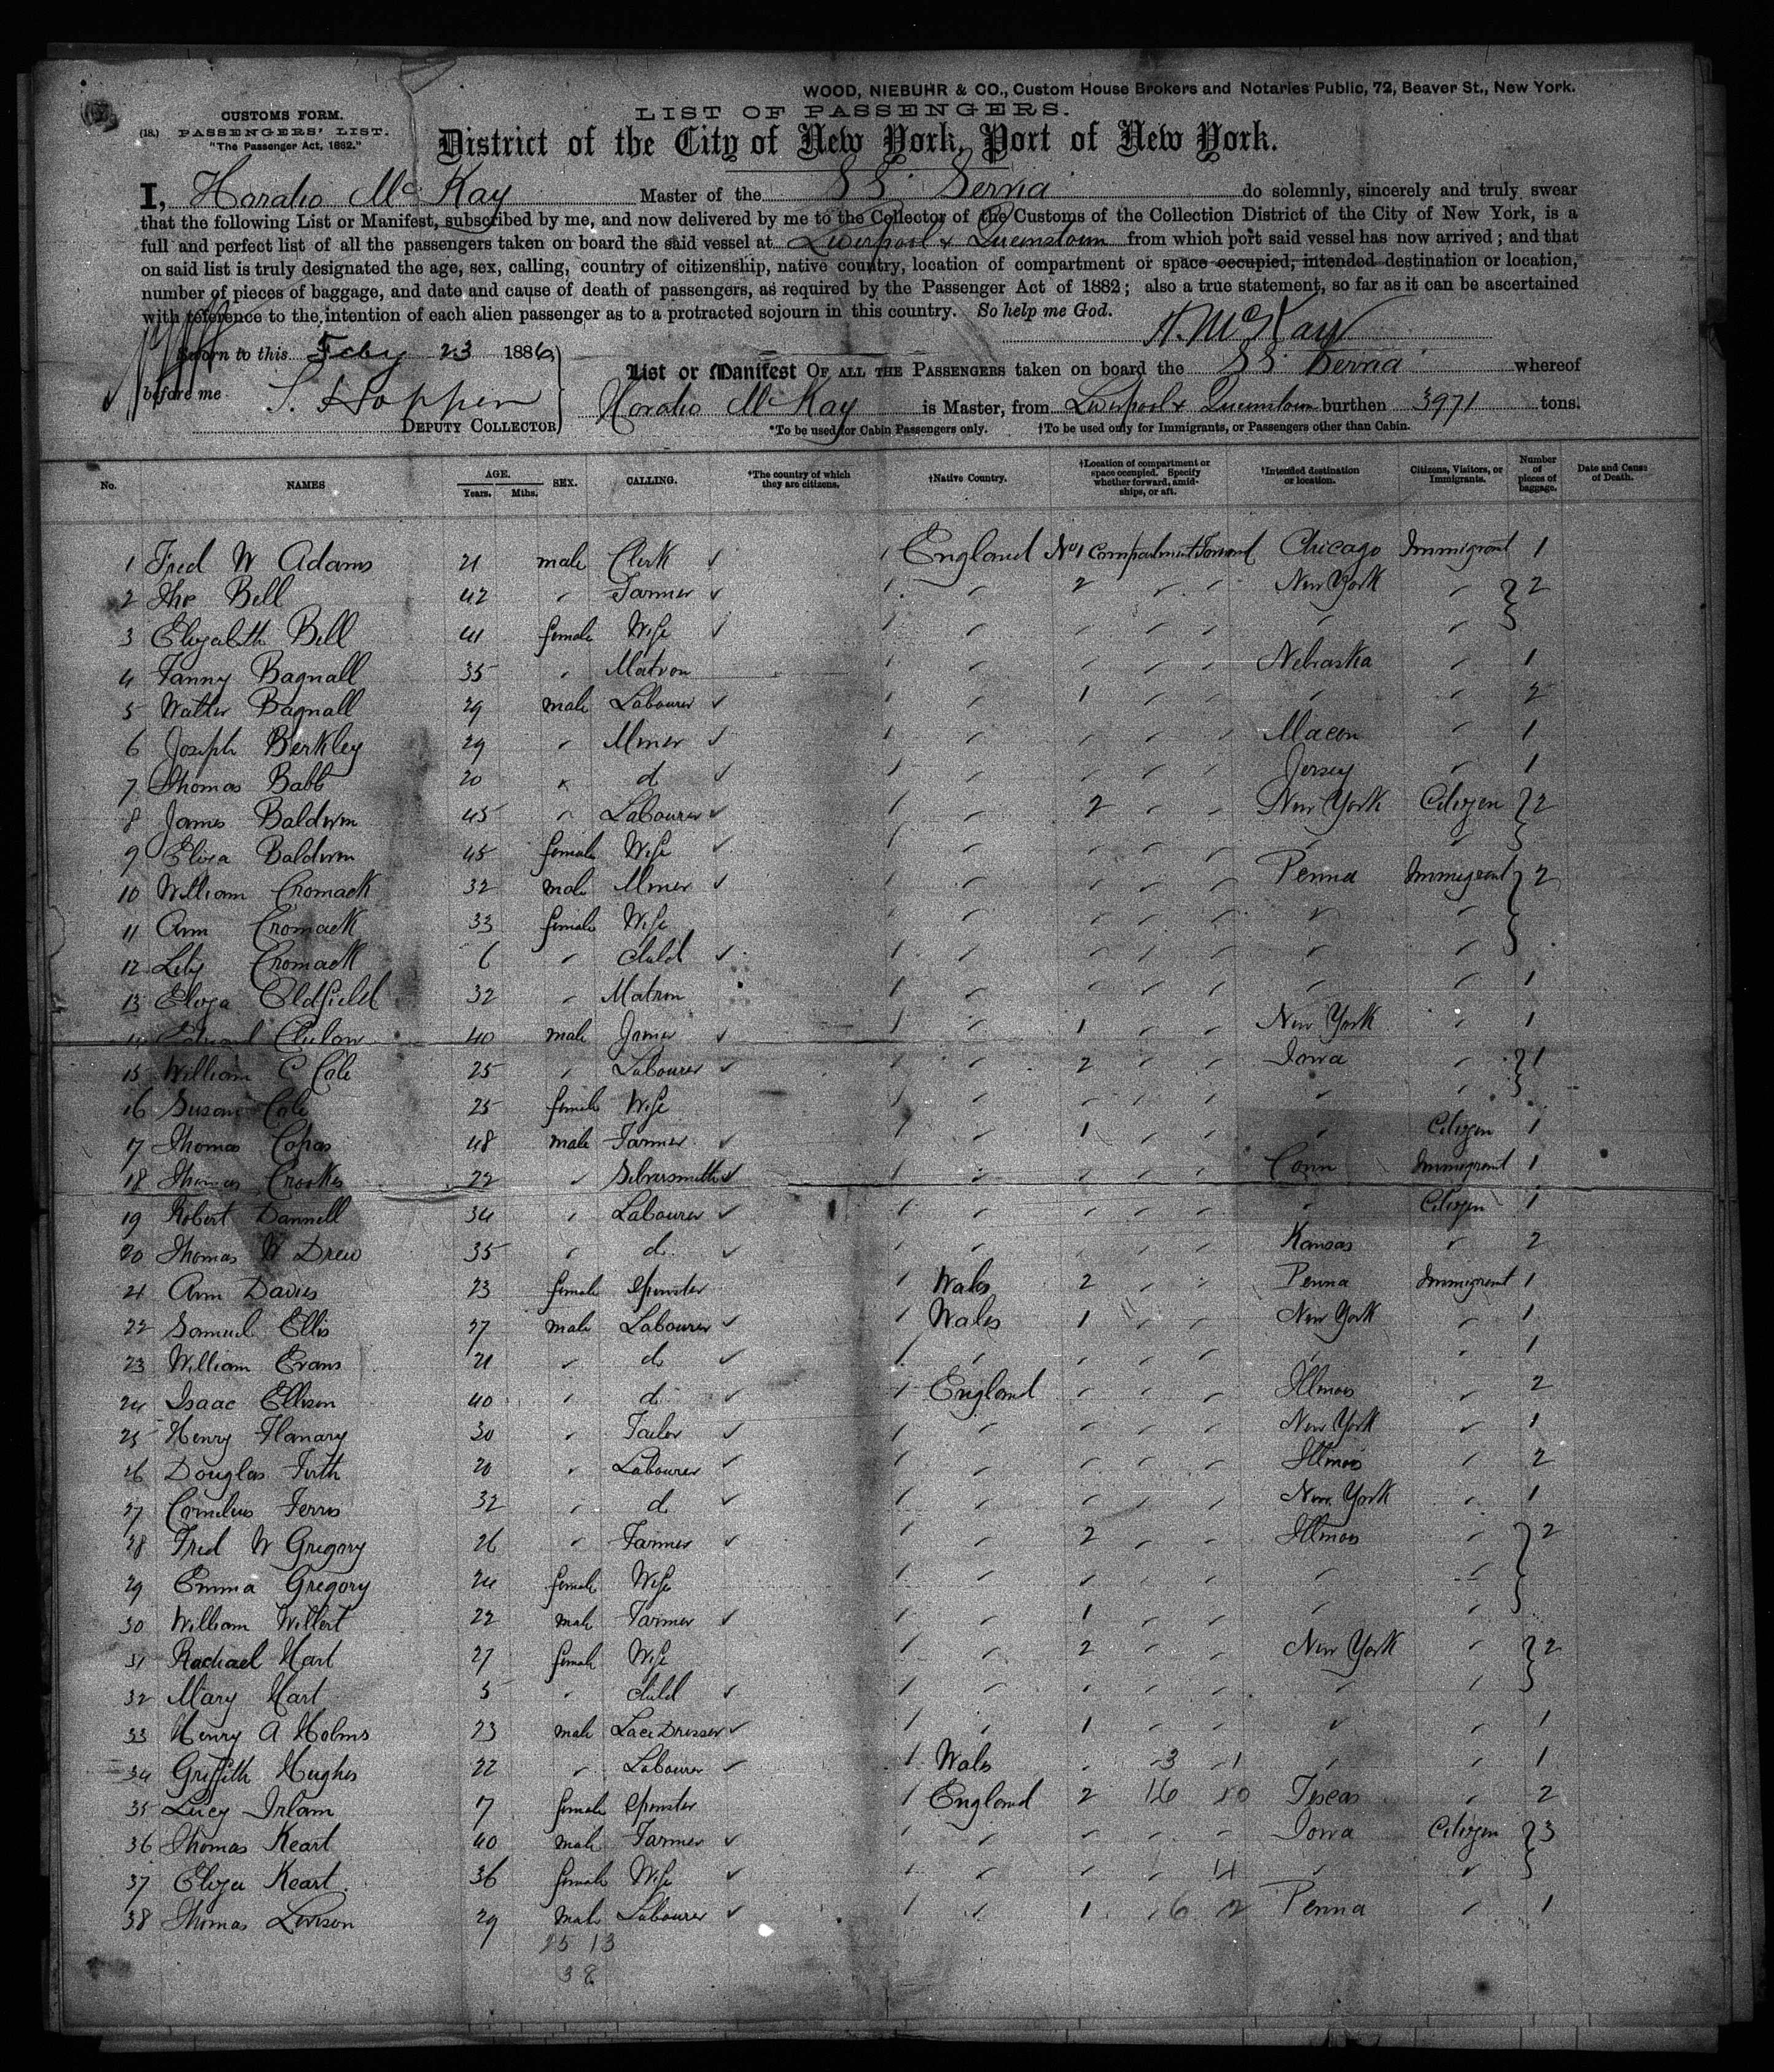 WOOD, NIEBUHR & CO., Custom House Brokers and Notaries Public, 72, Beaver St., New York.
CUSTOMS FORM.
LIST OF PASSENGERS.
(18.) PASSENGERS' LIST.
"The Passenger Act, 1882."
District of the City of New York, Port of New York.
I, Horatio McKay Master of the SS. Servia do solemnly, sincerely and truly swear
that the following List or Manifest, subscribed by me, and now delivered by me to the Collector of the Customs of the Collection District of the City of New York, is a
full and perfect list of all the passengers taken on board the said vessel at Liverpool & Queenstown from which port said vessel has now arrived; and that
on said list is truly designated the age, sex, calling, country of citizenship, native country, location of compartment or space occupied, intended destination or location,
number of pieces of baggage, and date and cause of death of passengers, as required by the Passenger Act of 1882; also a true statement, so far as it can be ascertained
with reference to the intention of each alien passenger as to a protracted sojourn in this country. So help me God.
H. McKay
Sworn to this Feby 23 1886
List or Manifest OF ALL THE PASSENGERS taken on board the SS. Servia whereof
before me S. Hoppin
Horatio McKay is Master, from Liverpool & Queenstown burthen 3971 tons.
DEPUTY COLLECTOR
*To be used for Cabin Passengers only. †To be used only for Immigrants, or Passengers other than Cabin.
No. NAMES AGE. Years. Mths. SEX. CALLING. *The country of which they are citizens. †Native Country. †Location of compartment or space occupied. Specify whether forward, amidships, or aft. †Intended destination or location. Citizens, Visitors, or Immigrants. Number of pieces of baggage. Date and Cause of Death.
1 Fred W Adams 21 male Clerk ✓ 1 England No 1 Compartment Forward Chicago Immigrant 1
2 Tho Bell 42 " Farmer ✓ 1 " 2 " " New York " 2
3 Elizabeth Bell 41 female Wife ✓ 1 " " " " " "
4 Fanny Bagnall 35 " Matron 1 " " " " Nebraska " 1
5 Walter Bagnall 29 male Labourer ✓ 1 " 1 " " " " 2
6 Joseph Berkley 29 " Miner ✓ 1 " " " " Macon " 1
7 Thomas Babb 20 " do ✓ 1 " " " " Jersey " 1
8 James Baldwin 45 " Labourer ✓ 1 " 2 " " New York Citizen 2
9 Eliza Baldwin 45 female Wife ✓ 1 " " " " " "
10 William Cromack 32 male Miner ✓ 1 " " " " Penna Immigrant 2
11 Ann Cromack 33 female Wife 1 " " " " " "
12 Lily Cromack 6 " Child ✓ 1 " " " " " "
13 Eliza Oldfield 32 " Matron 1 " " " " " " 1
14 Edward Clulow 40 male Joiner ✓ 1 " 1 " " New York " 1
15 William C Cole 25 " Labourer ✓ 1 " 2 " " Iowa " 1
16 Susan Cole 25 female Wife 1 " " " " " "
17 Thomas Copas 48 male Farmer ✓ 1 " 1 " " " Citizen 1
18 Thomas Crookes 22 " Silversmith ✓ 1 " " " " Conn Immigrant 1
19 Robert Dannell 34 " Labourer ✓ 1 " " " " " Citizen 1
20 Thomas W Drew 35 " do ✓ 1 " " " " Kansas " 2
21 Ann Davies 23 female Spinster 1 Wales 2 " " Penna Immigrant 1
22 Samuel Ellis 27 male Labourer ✓ 1 Wales 1 " " New York " 1
23 William Evans 21 " do ✓ 1 " " " " " " 1
24 Isaac Ellison 40 " do ✓ 1 England " " " Illinois " 2
25 Henry Flanary 30 " Tailor ✓ 1 " " " " New York " 1
26 Douglas Firth 20 " Labourer ✓ 1 " " " " Illinois " 2
27 Cornelius Ferris 32 " do ✓ 1 " " " " New York " 1
28 Fred W Gregory 26 " Farmer ✓ 1 " 2 " " Illinois " 2
29 Emma Gregory 24 female Wife 1 " " " " " "
30 William Willert 22 male Farmer ✓ 1 " 1 " " " "
31 Rachael Hart 27 female Wife 1 " 2 " " New York " 2
32 Mary Hart 5 " Child ✓ 1 " " " " " "
33 Henry A Holms 23 male Lace Dresser ✓ 1 " 1 " " " " 1
34 Griffith Hughes 22 " Labourer ✓ 1 Wales " 3 1 " " 1
35 Lucy Irlam 17 female Spinster 1 England 2 16 10 Texas " 2
36 Thomas Keart 40 male Farmer ✓ 1 " " " " Iowa Citizen 3
37 Eliza Keart 36 female Wife ✓ 1 " " " 14 " "
38 Thomas Lewison 29 male Labourer ✓ 1 " 1 6 2 Penna " 1
25 13
38